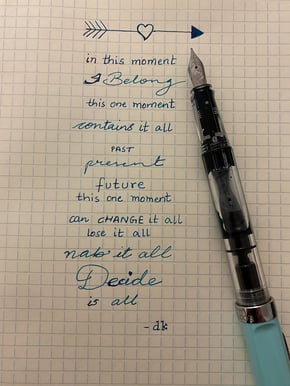 in this moment
I Belong
this one moment
contains it all
PAST
present
future
this one moment
can CHANGE it all
lose it all
nab it all
Decide
is all
- dk